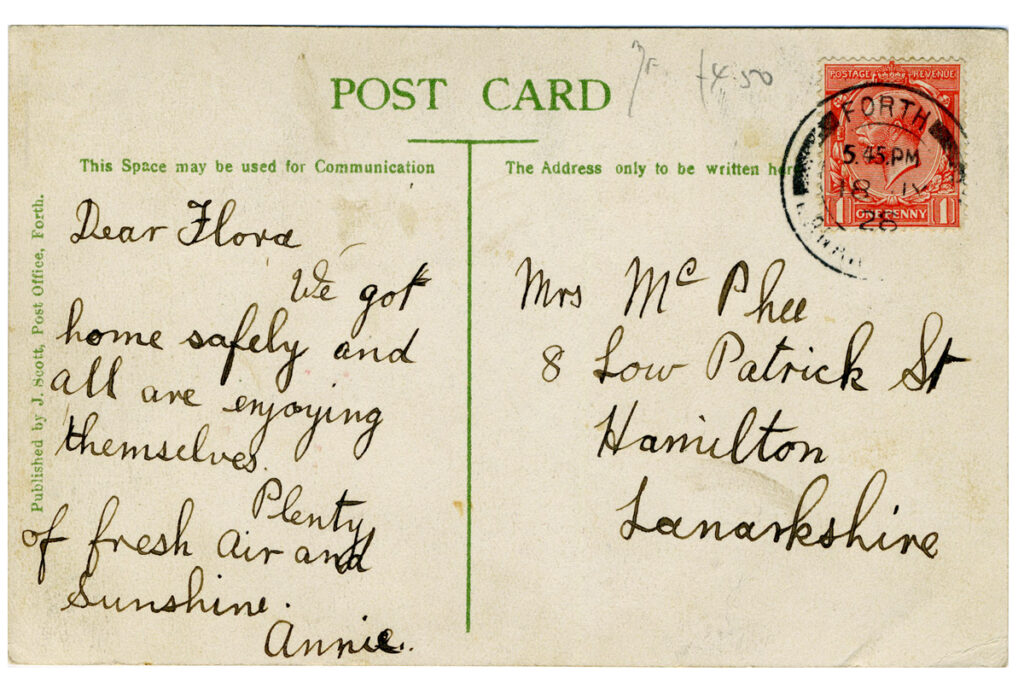 POST CARD
This Space may be used for Communication
The Address only to be written here
Published by J. Scott, Post Office, Forth.
Dear Flora
We got
home safely and
all are enjoying
themselves.
Plenty
of fresh air and
Sunshine.
Annie.
£4.50
POSTAGE REVENUE
1 ONE PENNY 1
FORTH
5.45 PM
18
26
LANARK
Mrs Mc Phee
8 Low Patrick St
Hamilton
Lanarkshire